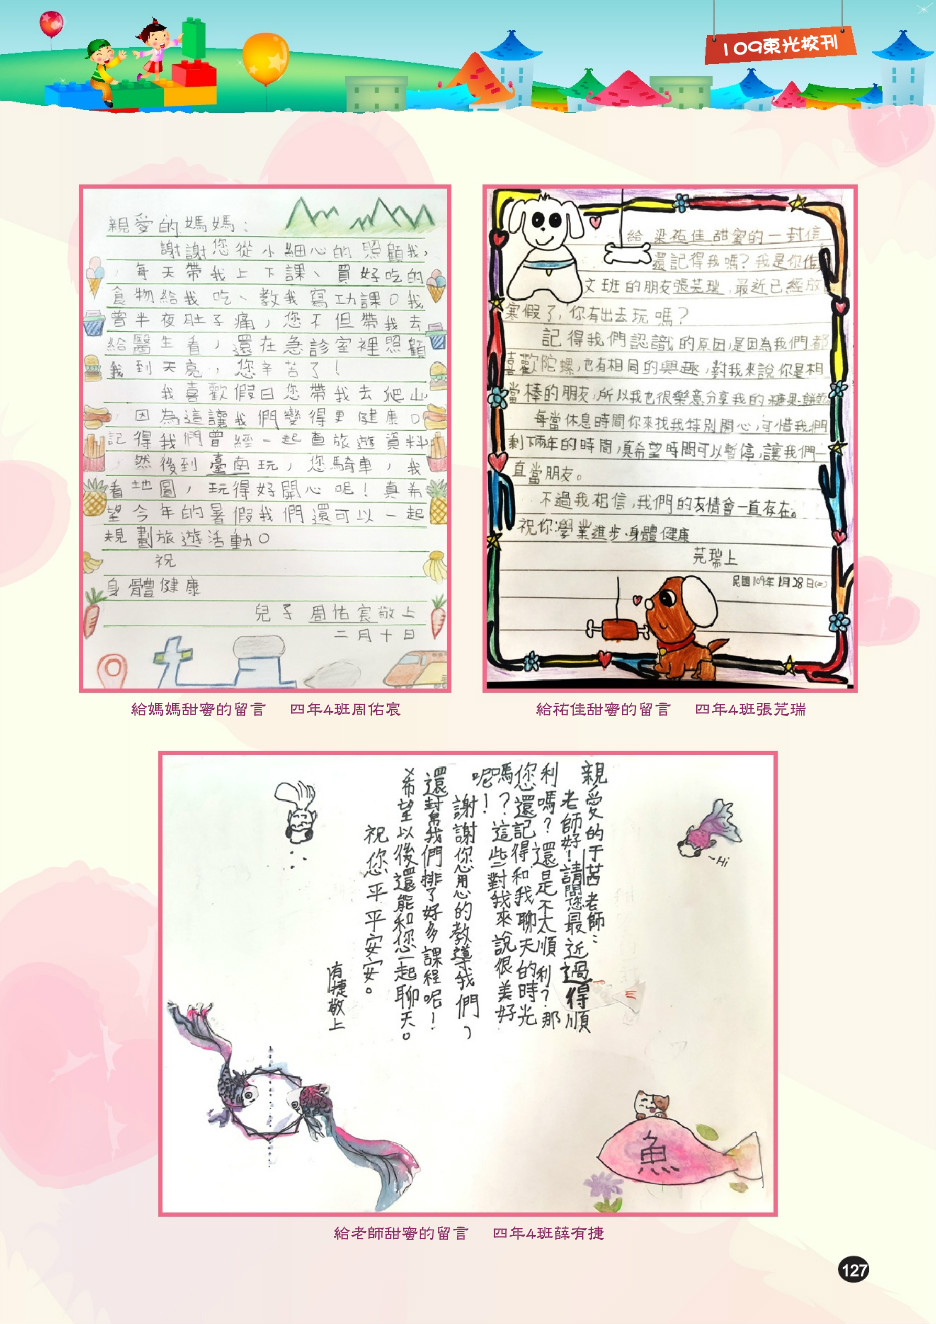 109東光校刊
親愛的媽媽：
謝謝您從小細心的照顧我，
每天帶我上下課、買好吃的
食物給我吃、教我寫功課。我
曾半夜肚子痛，您不但帶我去
給醫生看，還在急診室裡照顧
我到天亮，您辛苦了！
我喜歡假日您帶我去爬山
，因為這讓我們變得更健康。
記得我們曾經一起查旅遊資料
，然後到臺南玩，您騎車，我
看地圖，玩得好開心呢！真希
望今年的暑假我們還可以一起
規劃旅遊活動。
祝
身體健康
兒子 周佑宸敬上
二月十日
給媽媽甜蜜的留言 四年4班周佑宸
給梁祐佳甜蜜的一封信
還記得我嗎？我是你作
文班的朋友張芫瑞，最近已經放
寒假了，你有出去玩嗎？
記得我們認識的原因，是因為我們都
喜歡陀螺，也有相同的興趣，對我來說你是相
當棒的朋友，所以我也很樂意分享我的糖果、餅乾
每當休息時間你來找我特別開心，可惜我們
剩下兩年的時間，真希望時間可以暫停，讓我們一
直當朋友。
不過我相信，我們的友情會一直存在。
祝你：學業進步、身體健康
芫瑞上
民國109年1月28日(二)
給祐佳甜蜜的留言 四年4班張芫瑞
親愛的于茜老師：
老師好！請問您最近過得順
利嗎？還是不太順利？那
您還記得和我聊天的時光
嗎？這些對我來說很美好
呢！
謝謝您用心的教導我們，
還幫我們排了好多課程呢！
希望以後還能和您一起聊天。
祝您平平安安。
有捷敬上
Hi
魚
給老師甜蜜的留言 四年4班薛有捷
127